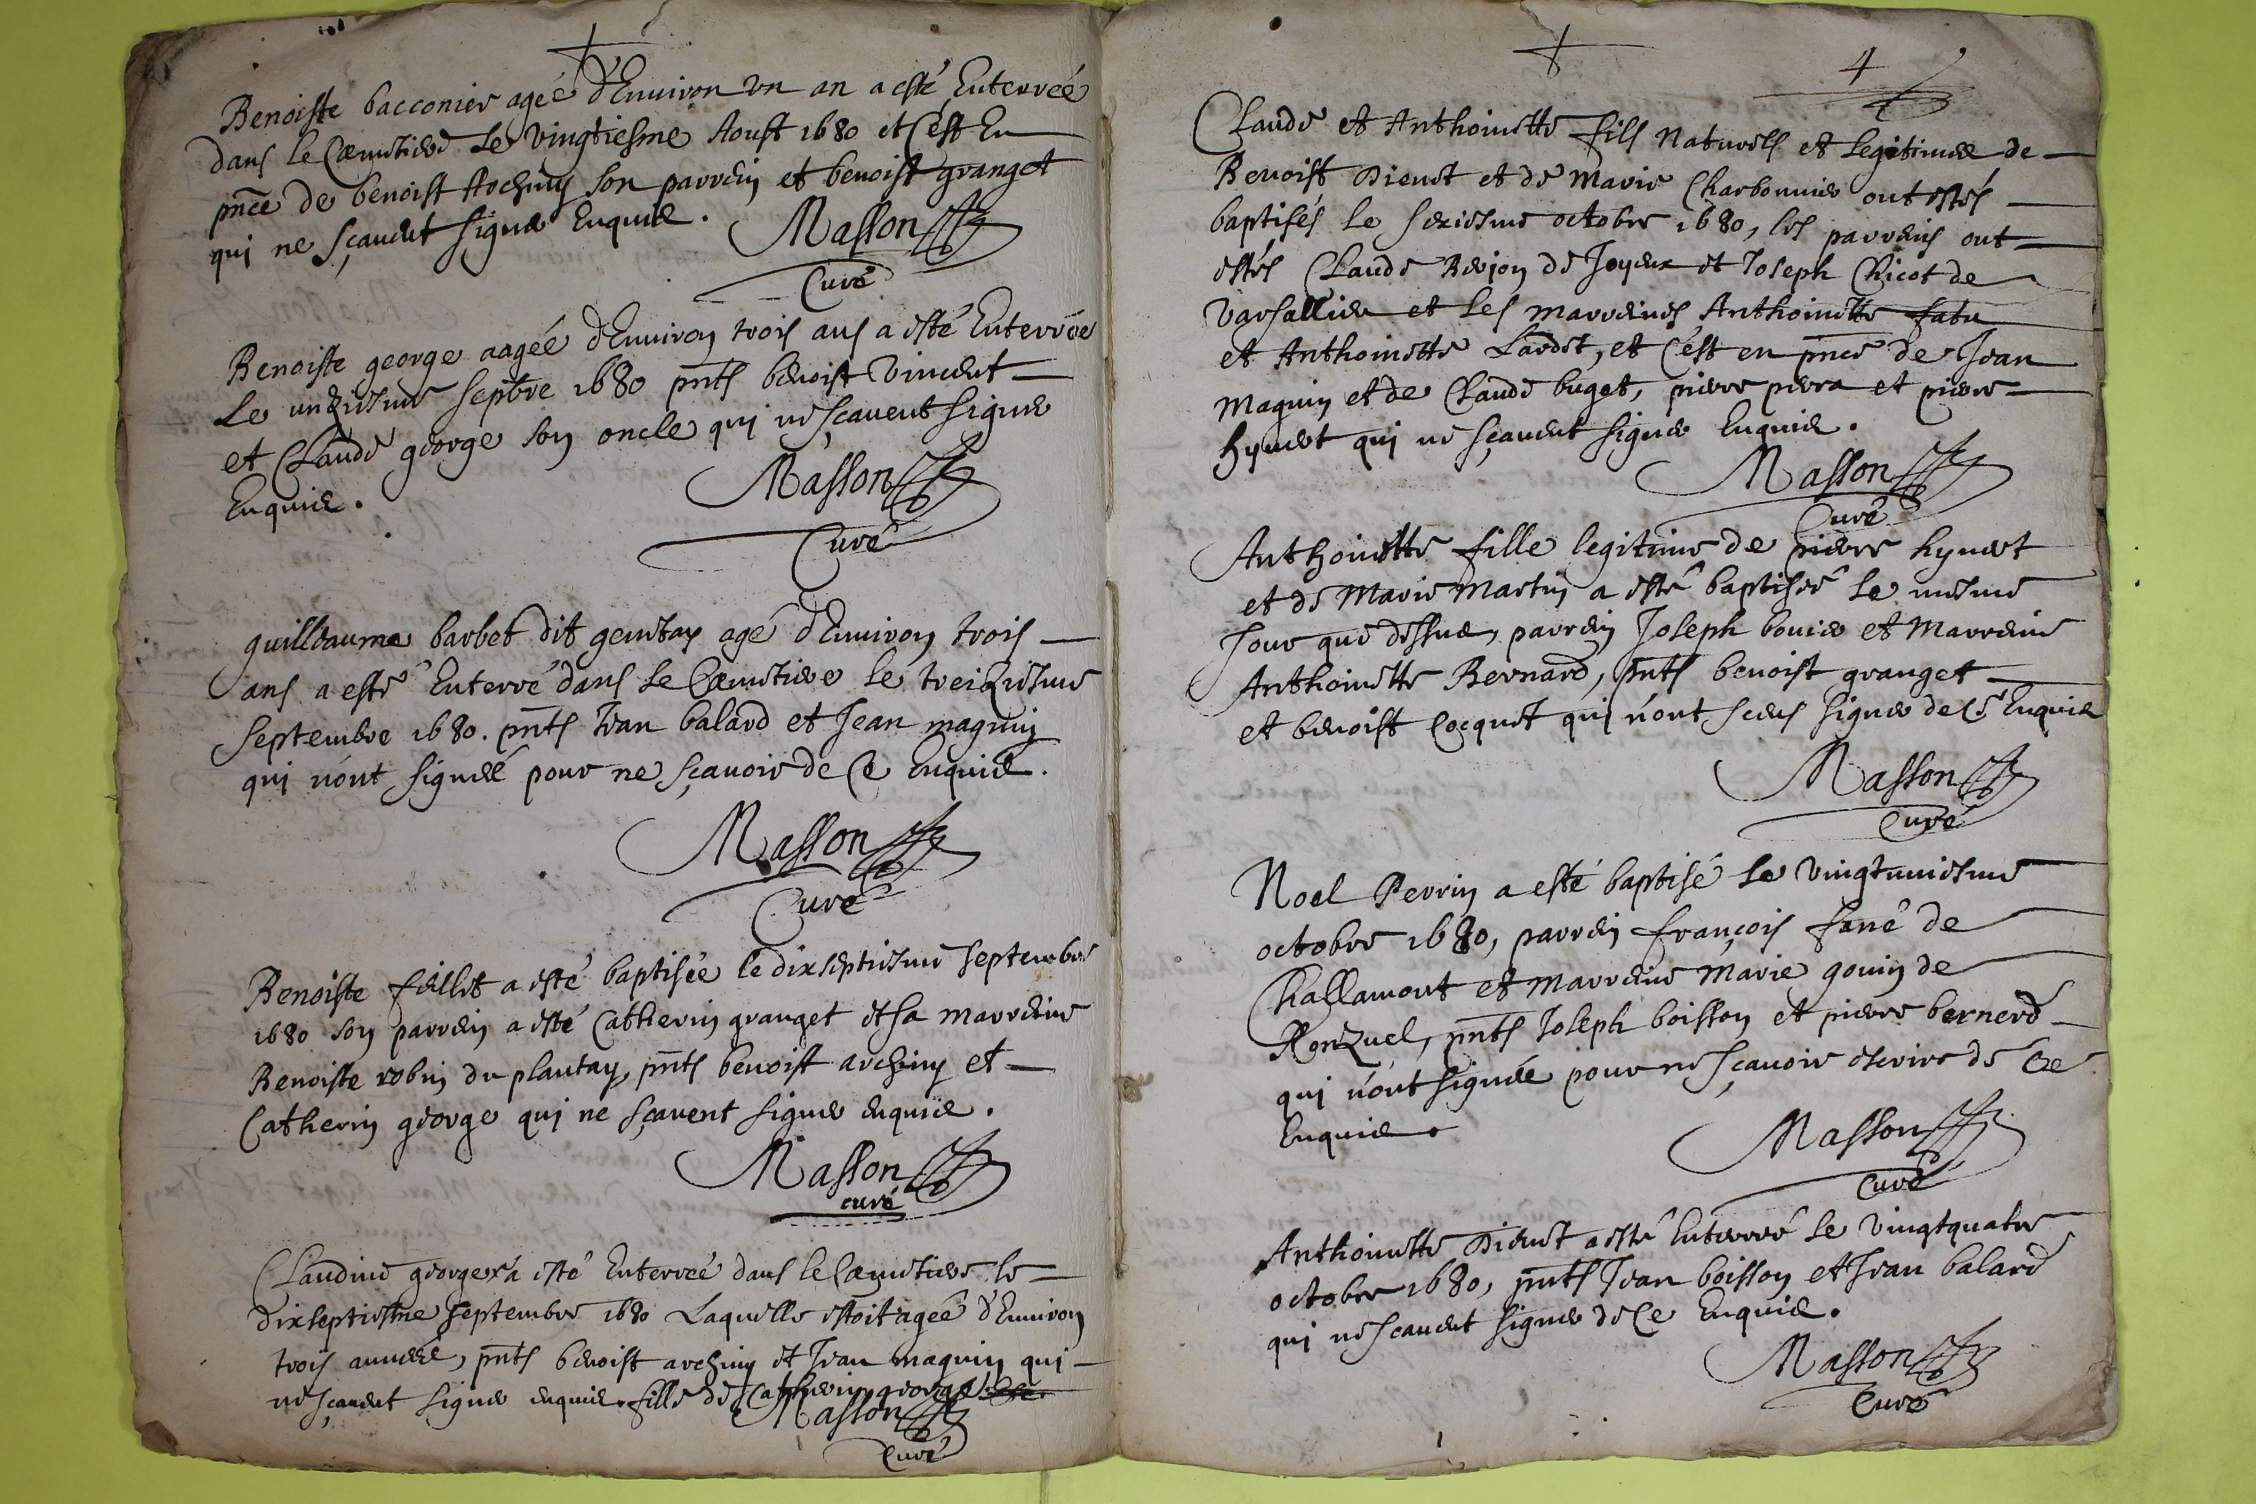 Benoiste bacconier agée d'Enuiron vn an a esté Enterreé
dans le Cœmetiere Le vingtiesme Aoust 1680 et C'est En
pñce de benoist Archiny son parrein et benoist granget
qui ne sçauent signer Enquis.
Masson
Curé
Benoiste george aagéé d'Enuiron trois ans a esté Enterrée
Le unziesme septbre 1680 pñts benoist Vincent
et Claude george son oncle qui ne sçauent signer
Enquis.
Masson
Curé
guilleaume barbet dit genetay agé d'Enuiron trois
ans a esté Enterré dans Le Cœmetiere Le treiziesme
Septembre 1680. pñts Jean balard et Jean magnin
qui n'ont signéé pour ne sçauoir de Ce enquis.
Masson
Curé
Benoiste feillet a esté baptisée le dixseptiesme septembre
1680 son parrein a esté Catherin granget et sa marreine
Benoiste robin du plantay, pñts benoist archiny et
Catherin george qui ne sçauent signer enquis.
Masson
curé
Claudine george a esté Enterreé dans le Cœmetiere le
dixseptiesme septembre 1680 Laquelle estoit agéé d'Enuiron
trois annéés, pñts benoist archiny et Jean magnin qui
ne sçauent signer enquis. fille de Catherin george
Masson
Curé
4
Claude et Anthoinette fils Naturels et Legitimes de
Benoist Dienet et de Marie Charbonnier ont estés
baptisés Le seziesme octobre 1680, les parreins ont
estés Claude Revjon de Joyeux et Joseph Chicot de
Varsallieu et Les marreines Anthoinette fatu
et Anthoinette Lardet, et C'est en pñce de Jean
Magnin et de Claude buget, pierre pivra et pierre
hyuert qui ne sçauent signer Enquis.
Masson
Curé
Anthoinette fille legitime de pierre hyuert
et de Marie Martin a esté baptisée Le mesme
Jour que dessus, parrein Joseph bouier et Marreine
Anthoinette Bernard, pñts benoist granget
et benoist Cocquet qui n'ont sceus signer de Ce Enquis
Masson
Curé
Noel Perrin a esté baptisé Le Vingtuniesme
octobre 1680, parrein françois fané de
Challamont et Marreine Marie gouin de
Ronzuel, pñts Joseph boisson et pierre bernerd
qui n'ont signéé pour ne sçauoir escrire de Ce
Enquis.
Masson
Curé
Anthoinette Dienet a esté Enterreé Le Vingtquatre
octobre 1680, pñts Jean boisson et Jean balard
qui ne sçauent signer de Ce Enquis.
Masson
Curé